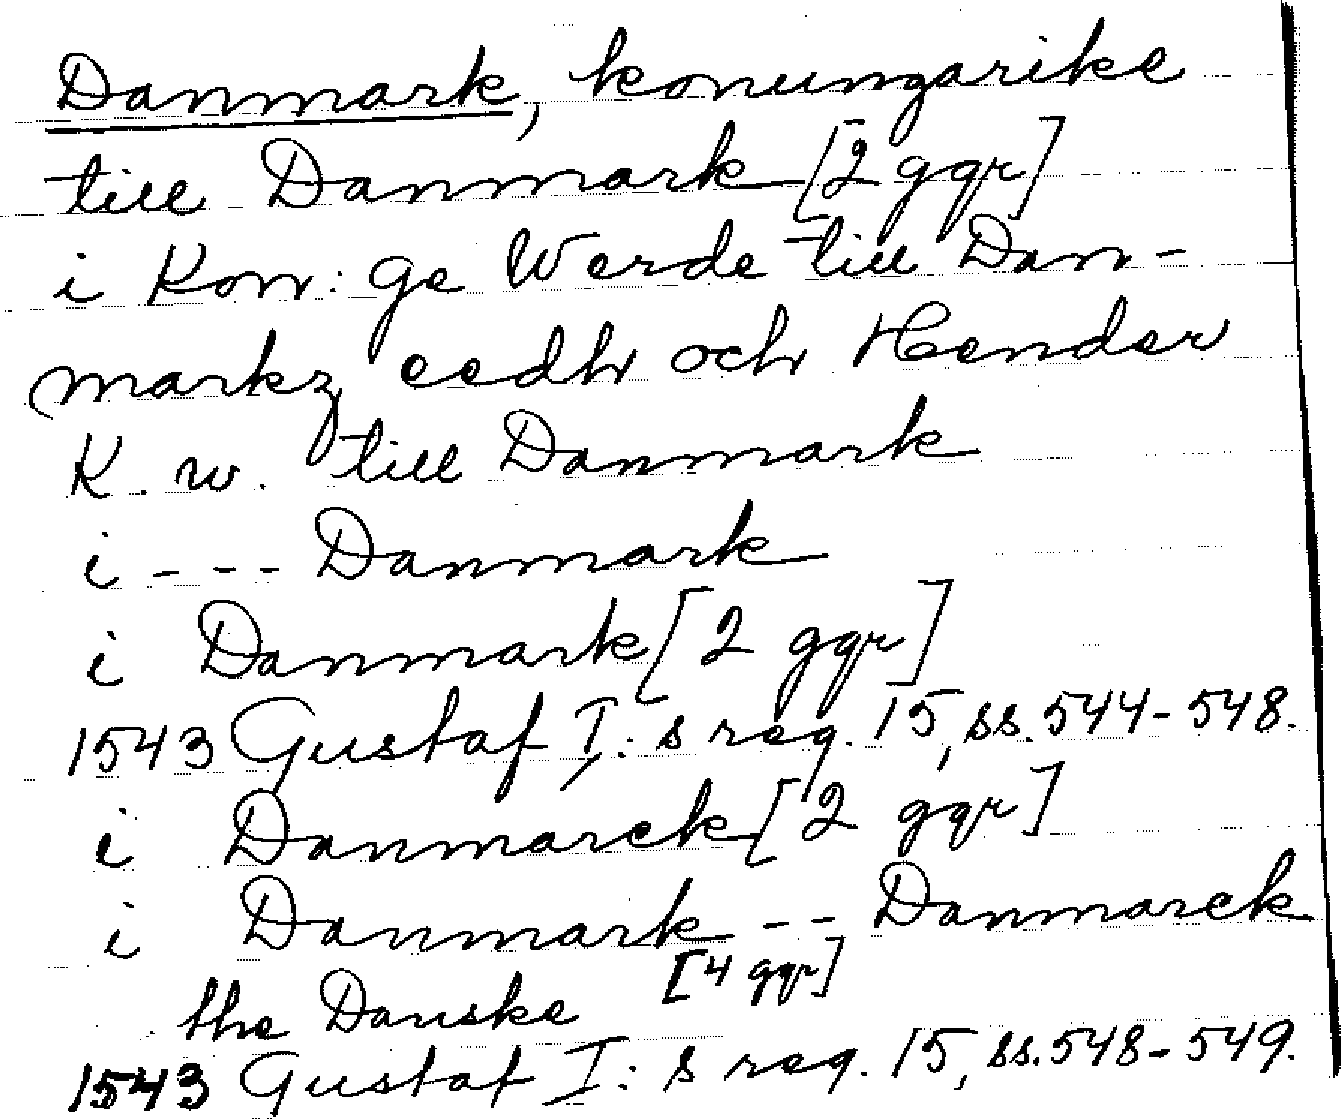 Danmark, konungarike
till Danmark [2 ggr]
i Kon: ge Werde till Dan-
markz eedh och Hender
K. w. till Danmark
i - - - Danmark
i Danmark [2 ggr]
1543 Gustaf I: s reg. 15, ss. 544-548.
i Danmarck [2 ggr]
i Danmark - - Danmarck
the Danske [4 ggr]
1543 Gustaf I: s reg. 15, ss. 548-549.